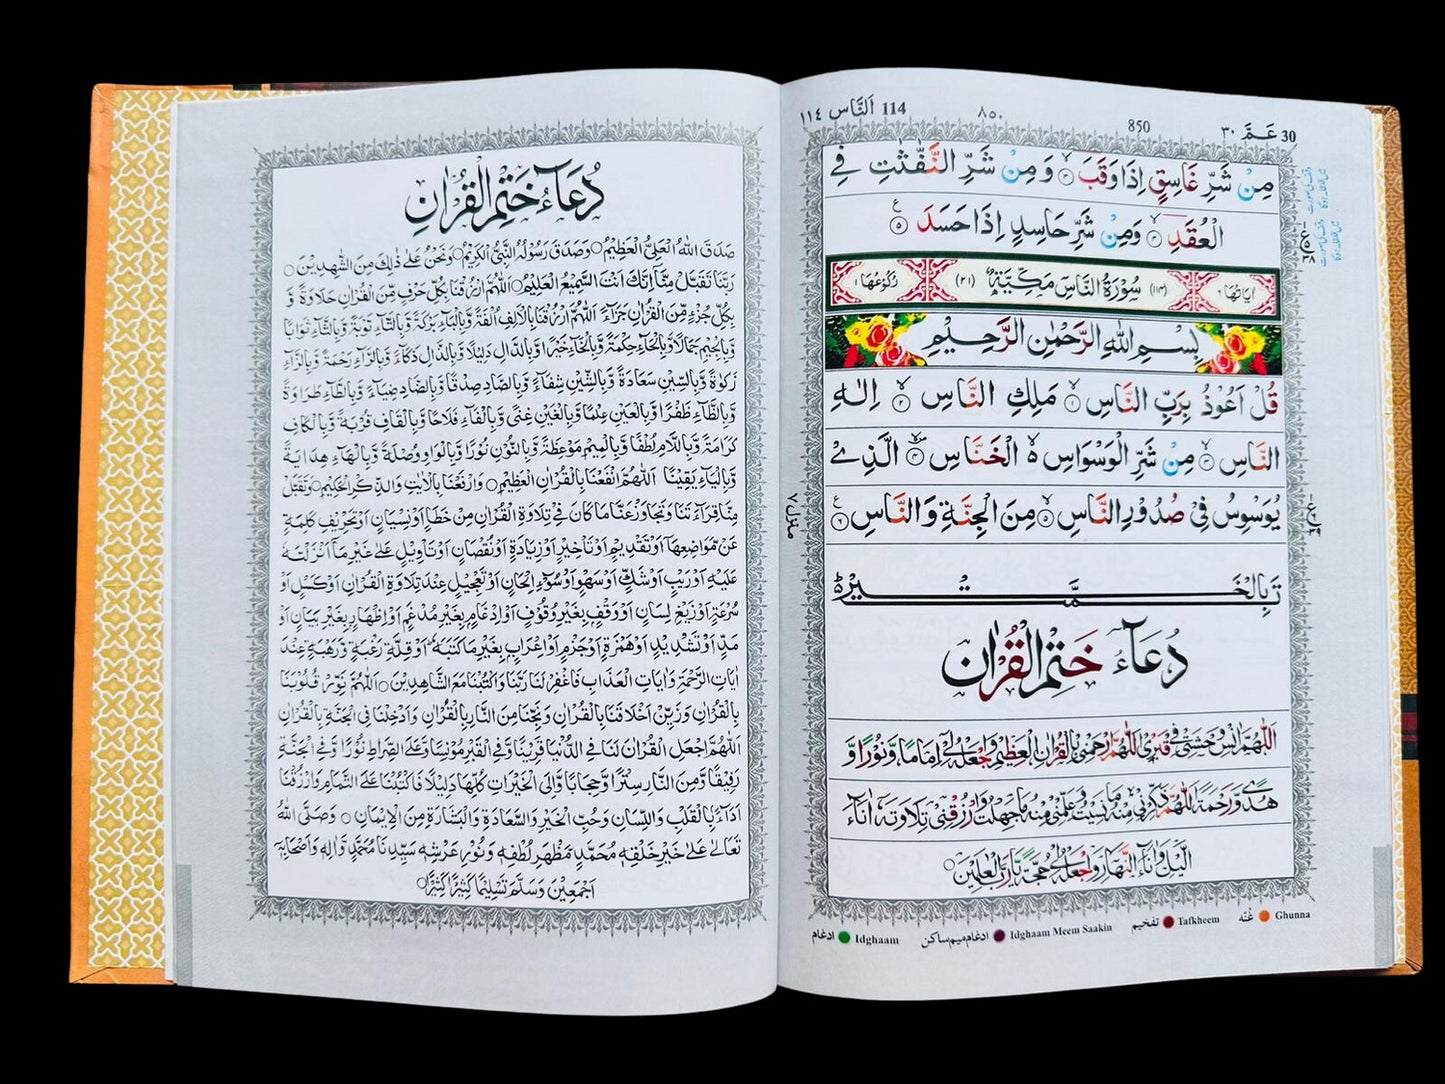 30 عَمَّ ٣٠
850
٨٥٠
114 اَلنَّاس ١١٤
مِنْ شَرِّ غَاسِقٍ اِذَا وَقَبَ ۙ۝٣ وَ مِنْ شَرِّ النَّفّٰثٰتِ فِي
الْعُقَدِ ۙ۝٤ وَمِنْ شَرِّ حَاسِدٍ اِذَا حَسَدَ ۝٥
اٰیَاتُهَا ٦ (١١٤) سُوْرَةُ النَّاسِ مَكِّيَّةٌ (٢١) رُكُوْعُهَا ١
بِسْمِ اللّٰهِ الرَّحْمٰنِ الرَّحِيْمِ
قُلْ اَعُوْذُ بِرَبِّ النَّاسِ ۙ۝١ مَلِكِ النَّاسِ ۙ۝٢ اِلٰهِ
النَّاسِ ۙ۝٣ مِنْ شَرِّ الْوَسْوَاسِ ەۙ الْخَنَّاسِ ۝٤ الَّذِیْ
یُوَسْوِسُ فِیْ صُدُوْرِ النَّاسِ ۙ۝٥ مِنَ الْجِنَّةِ وَالنَّاسِ ۝٦
منزل ٧
تَمَّتْ بِالْخَیْرِ
دُعَآءُ خَتْمِ الْقُرْاٰنِ
اَللّٰهُمَّ اٰنِسْ وَحْشَتِیْ فِیْ قَبْرِیْ اَللّٰهُمَّ ارْحَمْنِیْ بِالْقُرْاٰنِ الْعَظِیْمِ وَاجْعَلْهُ لِیْۤ اِمَامًا وَّنُوْرًا وَّ
هُدًی وَّرَحْمَةً اَللّٰهُمَّ ذَكِّرْنِیْ مِنْهُ مَا نَسِیْتُ وَعَلِّمْنِیْ مِنْهُ مَا جَهِلْتُ وَارْزُقْنِیْ تِلَاوَتَهٗ اٰنَآءَ
الَّیْلِ وَاٰنَآءَ النَّهَارِ وَاجْعَلْهُ لِیْ حُجَّةً یَّارَبَّ الْعٰلَمِیْنَ
Ghunna غُنّه Tafkheem تفخیم Idghaam Meem Saakin ادغام میم ساکن Idghaam ادغام
دُعَآءُ خَتْمِ الْقُرْاٰنِ
صَدَقَ اللّٰهُ الْعَلِیُّ الْعَظِیْمُ○وَصَدَقَ رَسُوْلُهُ النَّبِیُّ الْكَرِیْمُ○وَنَحْنُ عَلٰی ذٰلِكَ مِنَ الشّٰهِدِیْنَ○
رَبَّنَا تَقَبَّلْ مِنَّا اِنَّكَ اَنْتَ السَّمِیْعُ الْعَلِیْمُ○اَللّٰهُمَّ ارْزُقْنَا بِكُلِّ حَرْفٍ مِّنَ الْقُرْاٰنِ حَلَاوَةً وَّ
بِكُلِّ جُزْءٍ مِّنَ الْقُرْاٰنِ جَزَآءً اَللّٰهُمَّ ارْزُقْنَا بِالْاَلِفِ اُلْفَةً وَّبِالْبَآءِ بَرَكَةً وَّبِالتَّآءِ تَوْبَةً وَّبِالثَّآءِ ثَوَابًا
وَّبِالْجِیْمِ جَمَالًا وَّبِالْحَآءِ حِكْمَةً وَّبِالْخَآءِ خَیْرًا وَّبِالدَّالِ دَلِیْلًا وَّبِالذَّالِ ذَكَآءً وَّبِالرَّآءِ رَحْمَةً وَّبِالزَّآءِ
زَكٰوةً وَّبِالسِّیْنِ سَعَادَةً وَّبِالشِّیْنِ شِفَآءً وَّبِالصَّادِ صِدْقًا وَّبِالضَّادِ ضِیَآءً وَّبِالطَّآءِ طَرَاوَةً
وَّبِالظَّآءِ ظَفْرًا وَّبِالْعَیْنِ عِلْمًا وَّبِالْغَیْنِ غِنًی وَّبِالْفَآءِ فَلَاحًا وَّبِالْقَافِ قُرْبَةً وَّبِالْكَافِ
كَرَامَةً وَّبِاللَّامِ لُطْفًا وَّبِالْمِیْمِ مَوْعِظَةً وَّبِالنُّوْنِ نُوْرًا وَّبِالْوَاوِ وُصْلَةً وَّبِالْهَآءِ هِدَایَةً
وَّبِالْیَآءِ یَقِیْنًا اَللّٰهُمَّ انْفَعْنَا بِالْقُرْاٰنِ الْعَظِیْمِ○ وَارْفَعْنَا بِالْاٰیٰتِ وَالذِّكْرِ الْحَكِیْمِ○وَتَقَبَّلْ
مِنَّا قِرَآءَتَنَا وَتَجَاوَزْ عَنَّا مَا كَانَ فِیْ تِلَاوَةِ الْقُرْاٰنِ مِنْ خَطَاٍ اَوْ نِسْیَانٍ اَوْ تَحْرِیْفِ كَلِمَةٍ
عَنْ مَّوَاضِعِهَا اَوْ تَقْدِیْمٍ اَوْ تَاْخِیْرٍ اَوْ زِیَادَةٍ اَوْ نُقْصَانٍ اَوْ تَاْوِیْلٍ عَلٰی غَیْرِ مَا اَنْزَلْتَهٗ
عَلَیْهِ اَوْ رَیْبٍ اَوْ شَكٍّ اَوْ سَهْوٍ اَوْ سُوْٓءِ اِلْحَانٍ اَوْ تَعْجِیْلٍ عِنْدَ تِلَاوَةِ الْقُرْاٰنِ اَوْ كَسَلٍ اَوْ
سُرْعَةٍ اَوْ زَیْغِ لِسَانٍ اَوْ وَقْفٍ بِغَیْرِ وُقُوْفٍ اَوْ اِدْغَامٍ بِغَیْرِ مُدْغَمٍ اَوْ اِظْهَارٍ بِغَیْرِ بَیَانٍ اَوْ
مَدٍّ اَوْ تَشْدِیْدٍ اَوْ هَمْزَةٍ اَوْ جَزْمٍ اَوْ اِعْرَابٍ بِغَیْرِ مَا كَتَبَهٗ اَوْ قِلَّةِ رَغْبَةٍ وَّرَهْبَةٍ عِنْدَ
اٰیَاتِ الرَّحْمَةِ وَاٰیَاتِ الْعَذَابِ فَاغْفِرْ لَنَا رَبَّنَا وَاكْتُبْنَا مَعَ الشَّاهِدِیْنَ○اَللّٰهُمَّ نَوِّرْ قُلُوْبَنَا
بِالْقُرْاٰنِ وَزَیِّنْ اَخْلَاقَنَا بِالْقُرْاٰنِ وَنَجِّنَا مِنَ النَّارِ بِالْقُرْاٰنِ وَاَدْخِلْنَا فِی الْجَنَّةِ بِالْقُرْاٰنِ
اَللّٰهُمَّ اجْعَلِ الْقُرْاٰنَ لَنَا فِی الدُّنْیَا قَرِیْنًا وَّفِی الْقَبْرِ مُوْنِسًا وَّعَلَی الصِّرَاطِ نُوْرًا وَّفِی الْجَنَّةِ
رَفِیْقًا وَّمِنَ النَّارِ سِتْرًا وَّحِجَابًا وَّاِلَی الْخَیْرَاتِ كُلِّهَا دَلِیْلًا فَاكْتُبْنَا عَلَی التَّمَامِ وَارْزُقْنَا
اَدَآءً بِالْقَلْبِ وَاللِّسَانِ وَحُبِّ الْخَیْرِ وَالسَّعَادَةِ وَالْبَشَارَةِ مِنَ الْاِیْمَانِ○ وَصَلَّی اللّٰهُ
تَعَالٰی عَلٰی خَیْرِ خَلْقِهٖ مُحَمَّدٍ مَّظْهَرِ لُطْفِهٖ وَنُوْرِ عَرْشِهٖ سَیِّدِنَا مُحَمَّدٍ وَّاٰلِهٖ وَاَصْحَابِهٖ
اَجْمَعِیْنَ وَسَلَّمَ تَسْلِیْمًا كَثِیْرًا كَثِیْرًا○